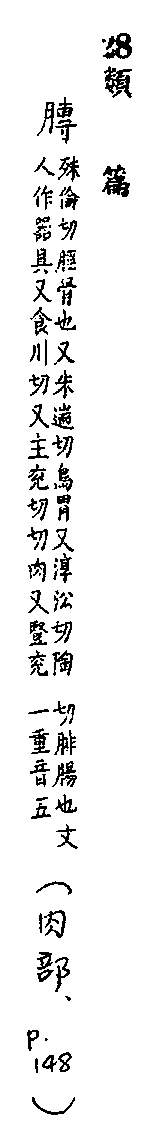 28 類篇
膞
殊倫切脛骨也又朱遄切鳥胃又淳沿切陶
人作器具又食川切又主兖切切肉又豎兖
切腓腸也文
一重音五
(肉部、p.148)